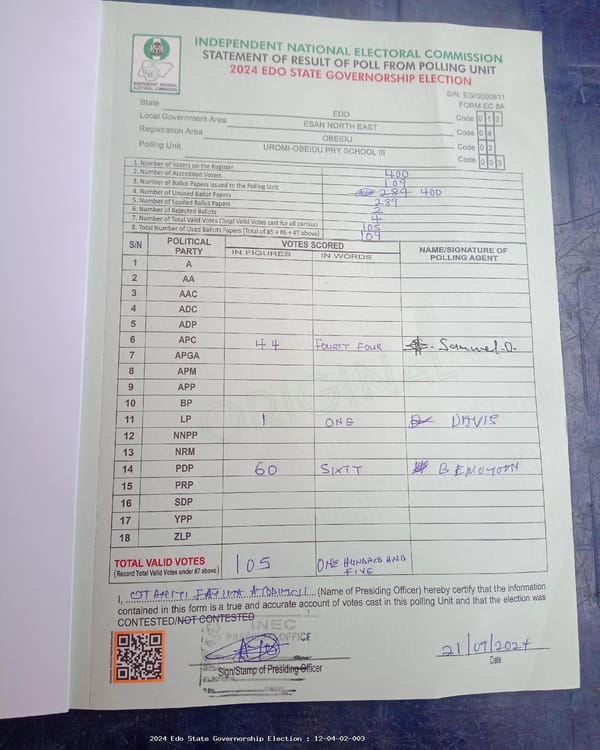 INDEPENDENT NATIONAL ELECTORAL COMMISSION
STATEMENT OF RESULT OF POLL FROM POLLING UNIT
2024 EDO STATE GOVERNORSHIP ELECTION
INEC
INDEPENDENT NATIONAL
ELECTORAL COMMISSION
S/N: EG/0000811
FORM EC 8A
State EDO Code 0 1 2
Local Government Area ESAN NORTH EAST Code 0 4
Registration Area OBEIDU Code 0 2
Polling Unit UROMI-OBEIDU PRY SCHOOL III Code 0 0 3
1. Number of Voters on the Register 400
2. Number of Accredited Voters 109
3. Number of Ballot Papers Issued to the Polling Unit 289 400
4. Number of Unused Ballot Papers 289
5. Number of Spoiled Ballot Papers
6. Number of Rejected Ballots 4
7. Number of Total Valid Votes (Total Valid Votes cast for all parties) 105
8. Total Number of Used Ballots Papers (Total of #5 + #6 + #7 above) 109
S/N POLITICAL PARTY VOTES SCORED NAME/SIGNATURE OF POLLING AGENT
IN FIGURES IN WORDS
1 A
2 AA
3 AAC
4 ADC
5 ADP
6 APC 44 FOURTY FOUR Samuel.O.
7 APGA
8 APM
9 APP
10 BP
11 LP 1 ONE DAVIS
12 NNPP
13 NRM
14 PDP 60 SIXTY
15 PRP
16 SDP
17 YPP
18 ZLP
ORIGINAL
TOTAL VALID VOTES 105 ONE HUNDRED AND FIVE
(Record Total Valid Votes under #7 above)
I, (Name of Presiding Officer) hereby certify that the information
contained in this form is a true and accurate account of votes cast in this polling Unit and that the election was
CONTESTED/NOT CONTESTED
INEC
PRESIDING OFFICE
21/09/2024
Sign/Stamp of Presiding Officer
Date
2024 Edo State Governorship Election : 12-04-02-003